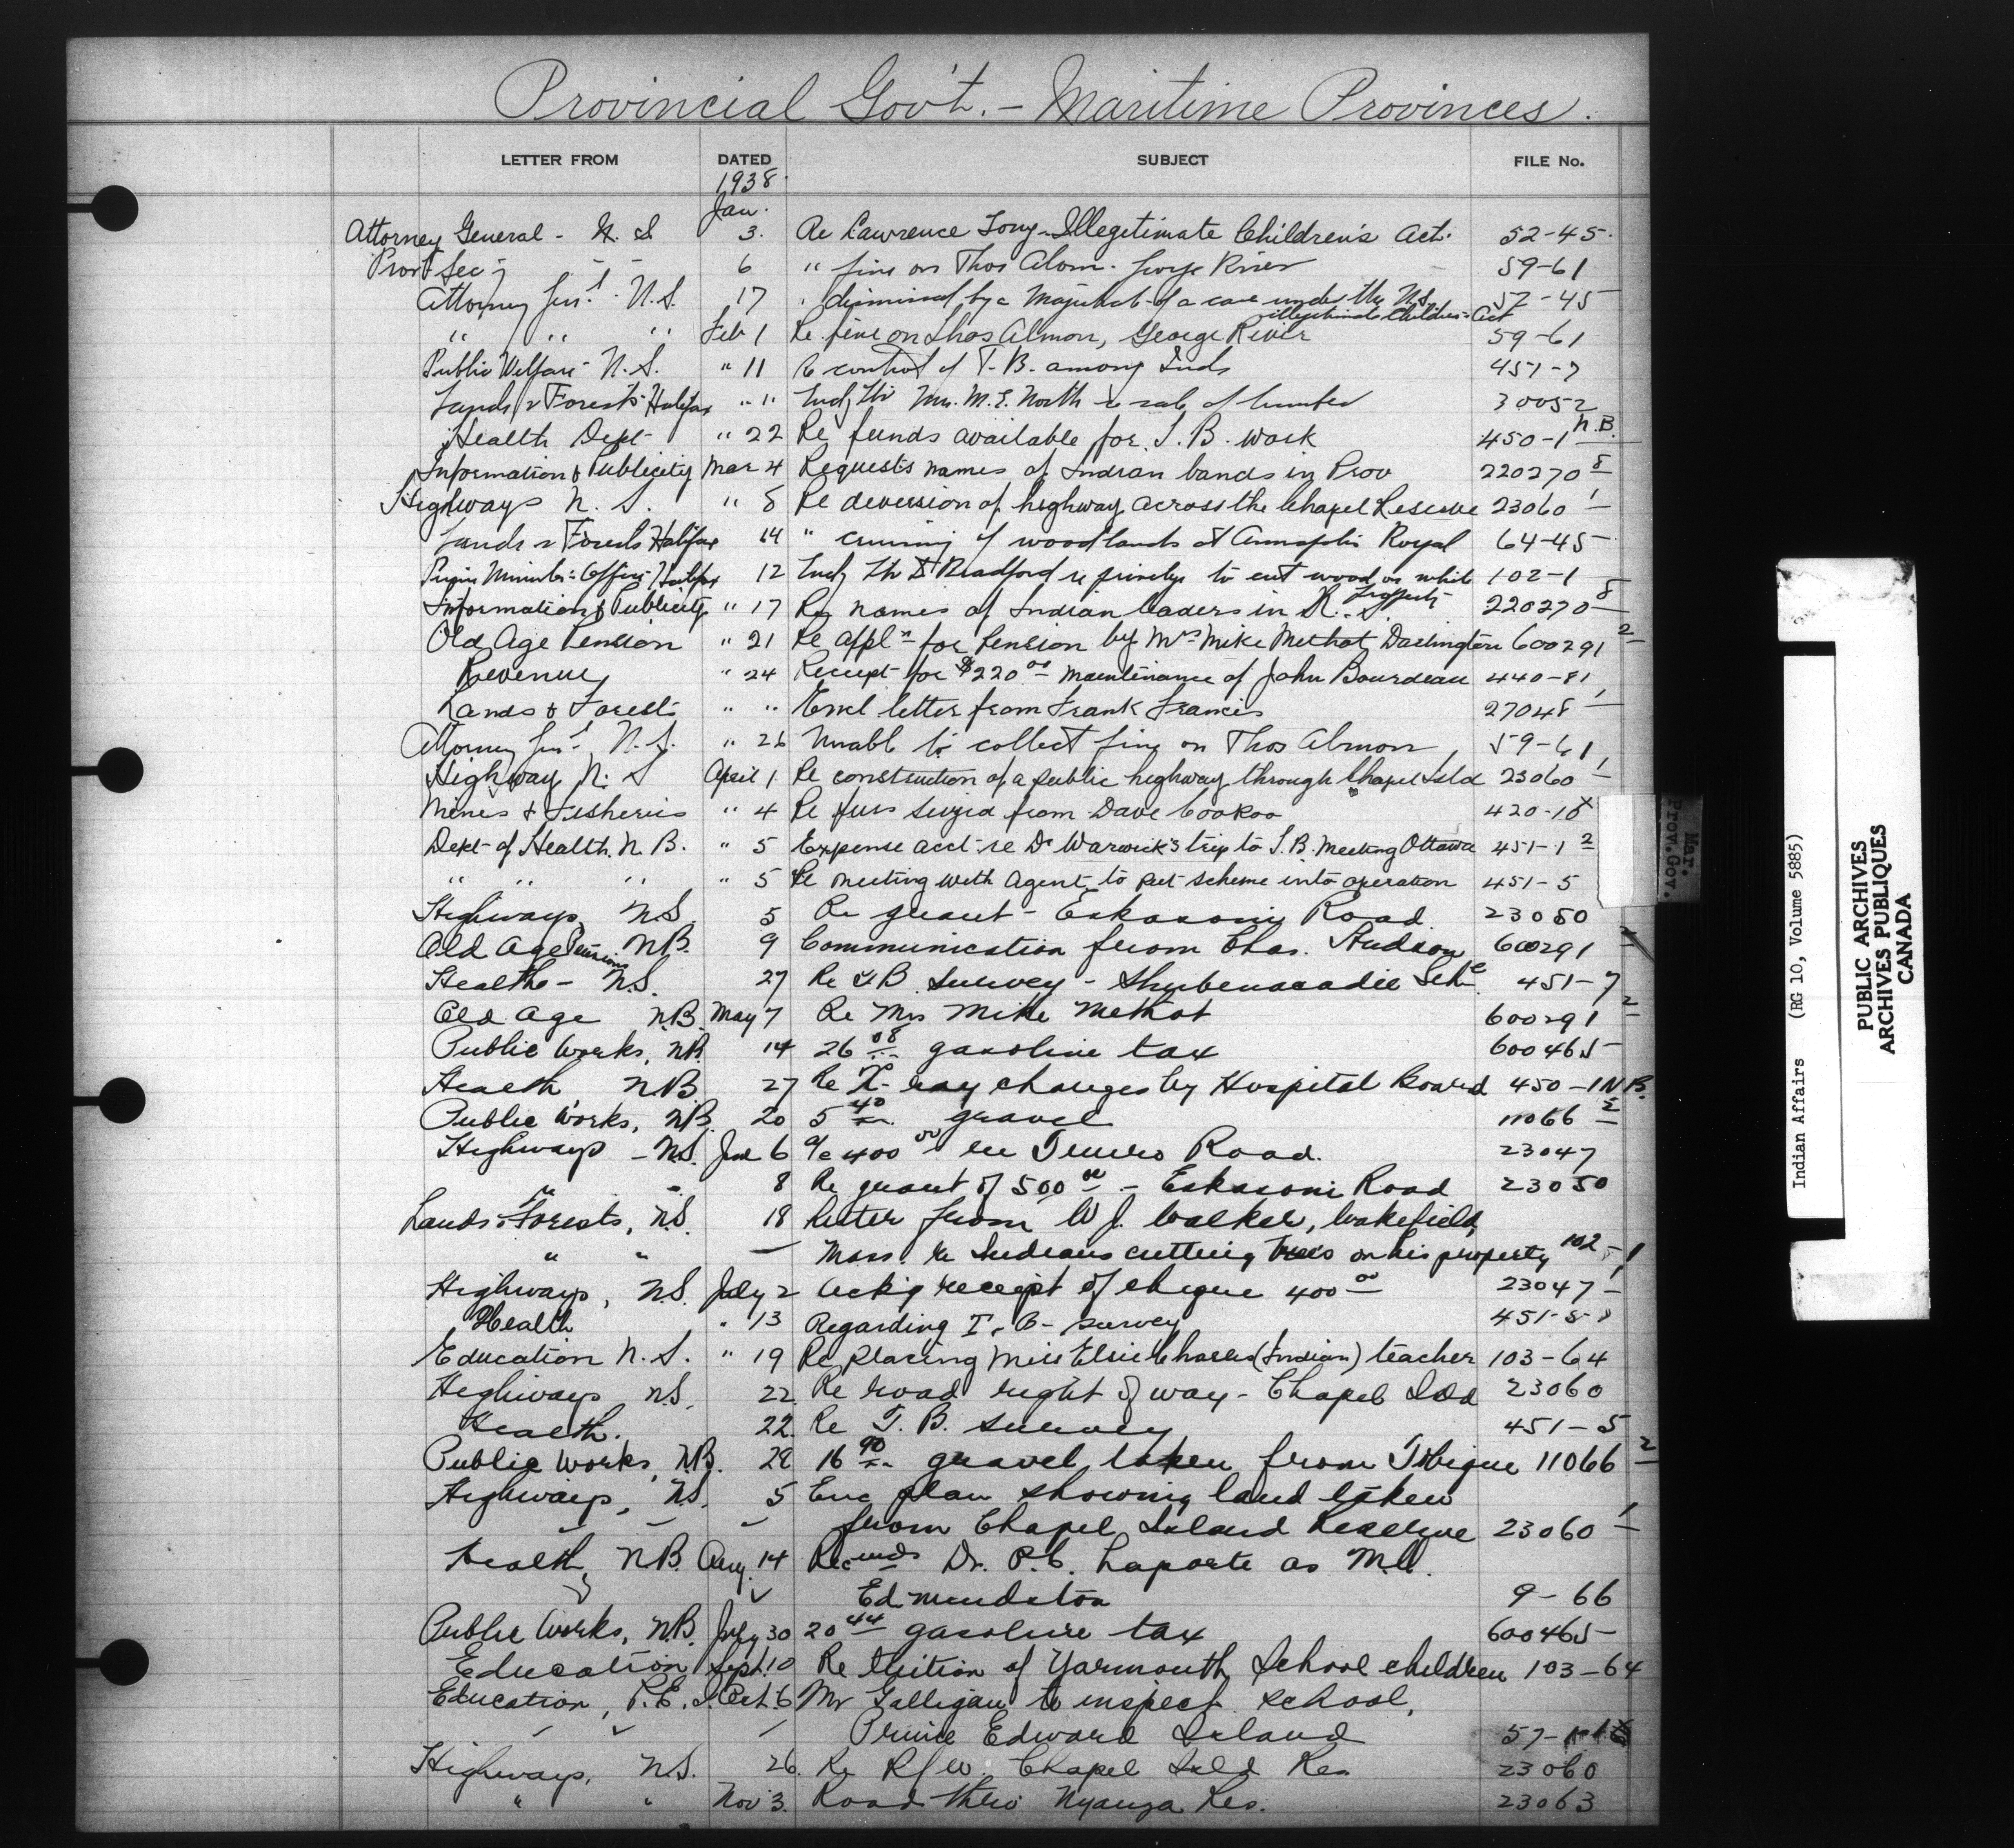 Provincial Gov't. - Maritime Provinces.
LETTER FROM DATED SUBJECT FILE No.
1938
Jan.
Attorney General - N. S. 3. Re Lawrence Tony - Illegitimate Children's Act. 52-45
Prov Sec'y " " 6 " fine on Thos Alom. George River 59-61
Attorney Gen'l. N.S. 17 " dismissal by a Magistrate of a case under the N.S. 52-45
illegitimate Children's Act
" " " Feb 1 Re fine on Thos Almon, George River 59-61
Public Welfare N.S. " 11 Re control of T.B. among Inds 451-7
Lands & Forests Halifax " 11 Encl ltr Mrs. M.E. North re sale of lumber 30052
Health Dept " 22 Re funds available for T.B. work 450-1 N.B.
Information & Publicity Mar 4 Requests names of Indian bands in Prov 220270 8
Highways N. S. " 8 Re diversion of highway across the Chapel Reserve 23060 1
Lands & Forests Halifax 14 " cruising of woodlands at Annapolis Royal 64-45
Prime Minister's Office Halifax 12 Encl ltr Bradford re privilege to cut wood on white 102-1
property
Information & Publicity " 17 Re names of Indian leaders in N. S. 220270 8
Old Age Pension " 21 Re appln for Pension by Mrs Mike Methot Darlington 600291 2
Revenue " 24 Receipt for $220 00 maintenance of John Bourdeau 440-81
Lands & Forests " " Encl letter from Frank Francis 27048 1
Attorney Gen'l, N.S. " 26 Unable to collect fine on Thos Almon 59-61
Highway N. S April 1 Re construction of a public highway through Chapel Isld 23060 1
Mines & Fisheries " 4 Re furs seized from Dave Cookoo 420-18
Dept of Health. N. B. " 5 Expense acct re Dr Warwick's trip to T.B. Meeting Ottawa 451-1 2
" " " " 5 Re meeting with Agent to put scheme into operation 451-5
Highways, N.S 5 Re grant - Eskasoni Road 23050
Old Age Pensions N.B. 9 Communication from Chas. 600291 2
Health - N.S. 27 Re T.B. survey - Shubenacadie Sch. 451-7
Old Age N.B. May 7 Re Mrs Mike Methot 600291 2
Public Works, N.B. 14 26 08 gasoline tax 600465
Health N.B 27 Re X-ray charges by Hospital Board 450-1 N.B.
Public Works, N.B. 20 5 40 gravel 11066 2
Highways - N.S. Jne 6 a/c 400 00 re Truro Road. 23047
" " 8 Re grant of 500 00 - Eskasoni Road 23050
Lands & Forests, N.S. 18 Letter from W J. Walker, Wakefield,
" " - Mass. re Indians cutting trees on his property 102-1
Highways, N.S. July 2 Ackg receipt of cheque 400 00 23047 1
Health " 13 Regarding T. B. survey 451-5
Education N. S. " 19 Re placing Miss Elsie Charles (Indian) teacher 103-64
Highways N.S. 22 Re road right of way - Chapel Isld 23060
Health. 22. Re T. B. survey 451-5
Public Works, N.B. 28 16 90 gravel taken from Tobique 11066 2
Highways, N.S. 5 Enc plan showing land taken
from Chapel Island Reserve 23060 1
Health, N.B. Aug. 14 Recmds Dr. P.C. Laporte as M.O.
Edmundston 9-66
Public Works, N.B. July 30 20 44 gasoline tax 600465
Education Sept. 10 Re tuition of Yarmouth School children 103-64
Education, P.E.I. Oct. 6 Mr Galligan to inspect school,
Prince Edward Island 57-
Highways, N.S. 26. Re R/W. Chapel Isld Res 23060
" " Nov 3. Road thro' Nyanza Res. 23063
Mar.
Prov. Gov.
Indian Affairs (RG 10, Volume 5885)
PUBLIC ARCHIVES
ARCHIVES PUBLIQUES
CANADA